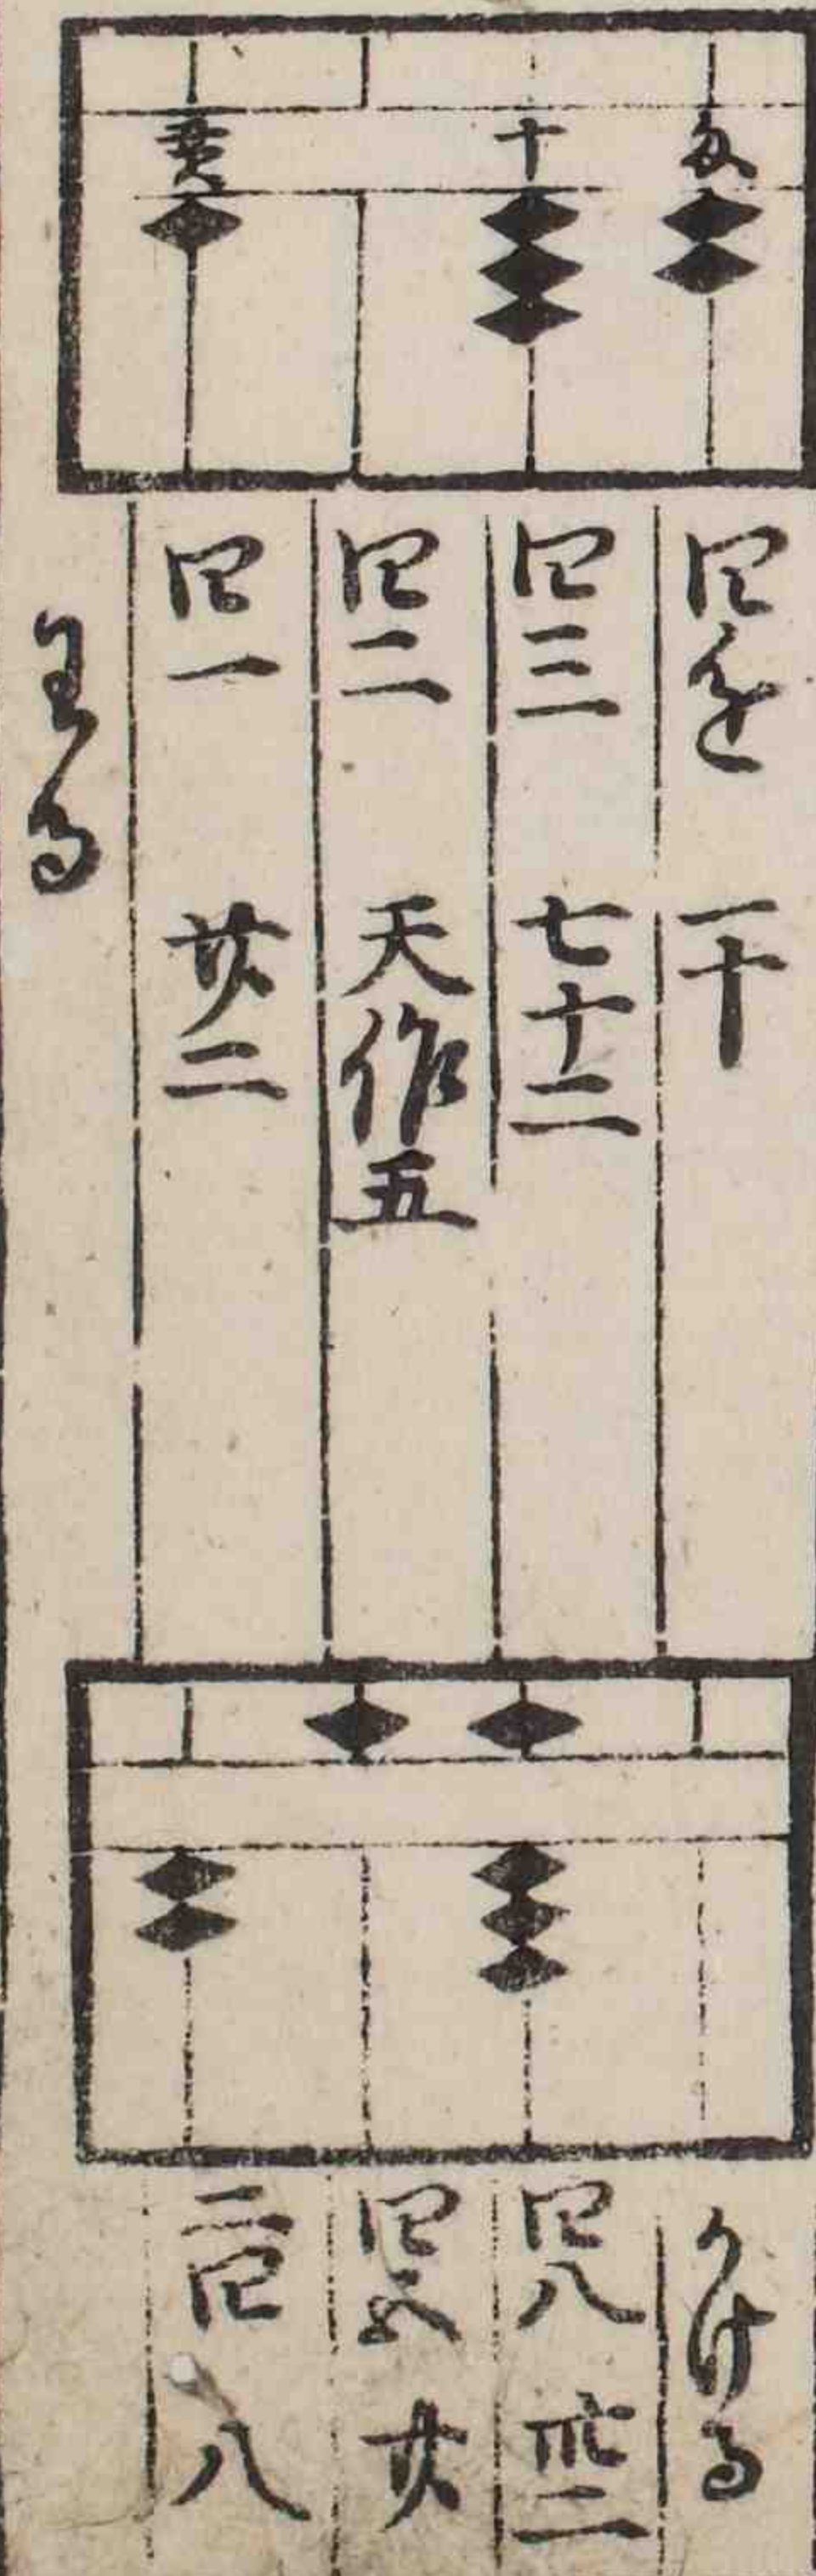 匁
十
貫
四進 一十
四三 七十二
四二 天作五
四一 廿二
わる
かける
四八 卅二
四五 廿
二四 八